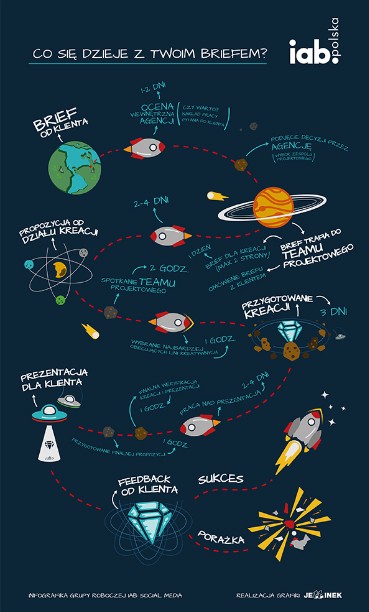 iab.polska
CO SIĘ DZIEJE Z TWOIM BRIEFEM?
1-2 DNI
BRIEF
OD KLIENTA
OCENA
WEWNĘTRZNA
AGENCJI
CZY WARTO?
NAKŁAD PRACY
PYTANIA DO KLIENTA
PODJĘCIE DECYZJI PRZEZ
AGENCJĘ
PROPOZYCJA OD
DZIAŁU KREACJI
2-4 DNI
1 DZIEŃ
BRIEF DLA KREACJI
(MAX 2 STRONY)
BRIEF TRAFIA DO
TEAMU
PROJEKTOWEGO
OMÓWIENIE BRIEFU
Z KLIENTEM
2 GODZ
SPOTKANIE TEAMU
PROJEKTOWEGO
PRZYGOTOWANIE
KREACJI
3 DNI
WYBRANIE NAJBARDZIEJ
1 GODZ
PREZENTACJA
DLA KLIENTA
FINALNA WERYFIKACJA
KREACJI I PREZENTACJI
1 GODZ
PRACA NAD PREZENTACJĄ
2-4 DNI
PRZYGOTOWANIE FINALNEJ PROPOZYCJI
1 GODZ
FEEDBACK
OD KLIENTA
SUKCES
PORAŻKA
INFOGRAFIKA GRUPY ROBOCZEJ IAB SOCIAL MEDIA
REALIZACJA GRAFIKI